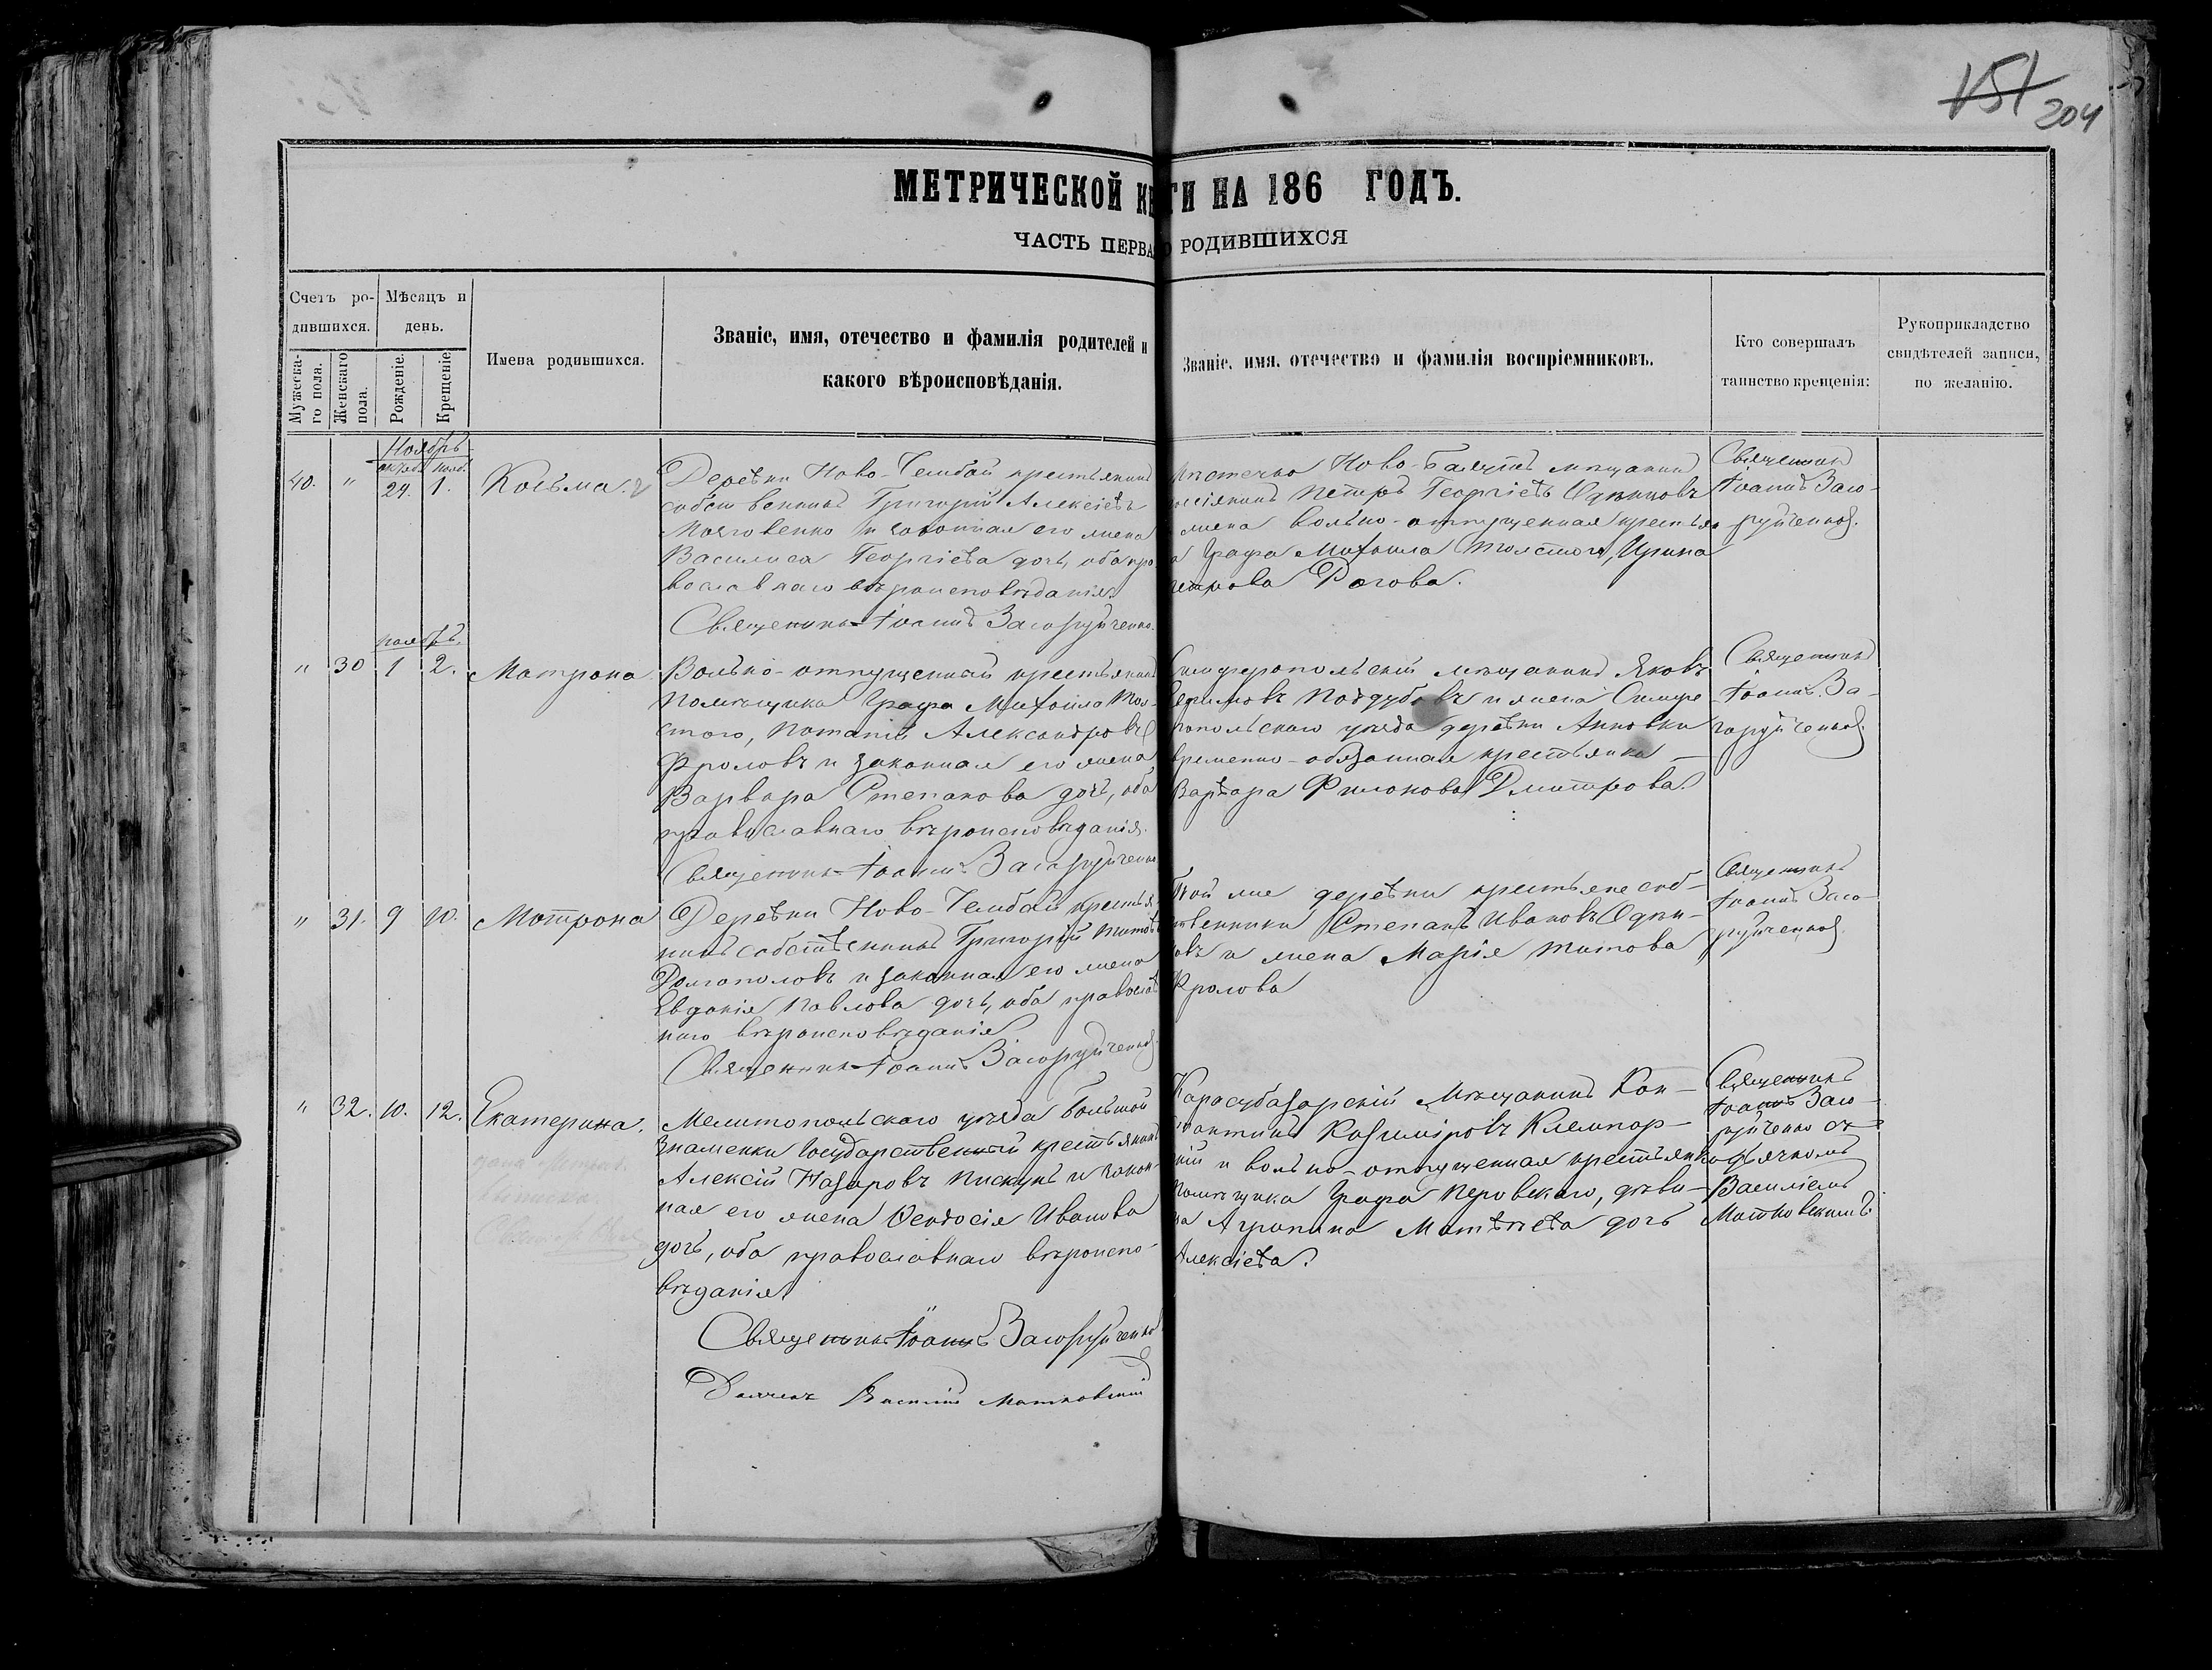 151 204
МЕТРИЧЕСКОЙ КН ГИ НА 186 ГОДЪ.
ЧАСТЬ ПЕРВА О РОДИВШИХСЯ
Счетъ ро-
дившихся.
Мѣсяцъ и
день.
Мужеска-
го пола.
Женскаго
пола.
Рожденіе.
Крещеніе
Имена родившихся.
Званіе, имя, отечество и фамилія родителей и
какого вѣроисповѣданія.
Званіе, имя, отечество и фамилія воспріемниковъ.
Кто совершалъ
таинство крещенія:
Рукоприкладство
свидѣтелей записи,
по желанію.
Ноябрь
октяб. нояб.
40. " 24. 1. Козьма.
Деревни Ново-Чембай крестьянинъ
собственникъ Григорій Алексіевъ
и законная его жена
Василиса Георгіева дочь, оба пра
вославнаго вѣроисповѣданія.
Священникъ Іоаннъ Загоруйченко.
Ново- мѣщанинъ
Петръ Георгіевъ Одинцовъ
жена вольно-отпущенная крестьян
а Графа Михаила Толстого, Ирина
Петрова Рогова.
Священникъ
Іоаннъ Заго-
руйченко.
ноябрь.
" 30 1 2. Матрона
Вольно-отпущенный крестьянинъ
помѣщика Графа Михаила Тол-
стого, Потапій Александровъ
Фроловъ и законная его жена
Варвара Степанова дочь, оба
православнаго вѣроисповѣданія.
Священникъ Іоаннъ Загоруйченко
Симферопольскій мѣщанинъ Яковъ
Поддубовъ и жена Симфе
ропольскаго уѣзда деревни Анновки
временно-обязанная крестьянка —
Варвара Филонова Дмитрова.
Священникъ
Іоаннъ За-
горуйченко
" 31. 9 10. Матрона
Деревни Ново-Чембай крестья
нинъ собственникъ Григорій Титовъ
Долгополовъ и законная его жена
Евдокія Павлова дочь, оба православ
наго вѣроисповѣданія
Священникъ Іоаннъ Загоруйченко
Той же деревни крестьяне соб-
ственники Степанъ Ивановъ Один-
овъ и жена Марія Титова
Фролова
Священникъ
Іоаннъ Заго-
руйченко
" 32. 10. 12. Екатерина.
Мелитопольскаго уѣзда Большой
Знаменки Государственный крестьянинъ
Алексій Назаровъ Пискунъ и закон-
ная его жена Ѳеодосія Иванова
дочь, оба православнаго вѣроиспо-
вѣданія
Священникъ Іоаннъ Загоруйченко
Дьячекъ Василій Матковскій
Карасубазарскій Мѣщанинъ Кон-
стантинъ Казиміровъ
и вольно-отпущенная крестьянка
помѣщика Графа Перовскаго, дѣви-
ца Агрипина Матвѣева дочь
Алексіева.
Священникъ
Іоаннъ Заго-
руйченко съ
дьячкомъ
Василіемъ
Матковскимъ